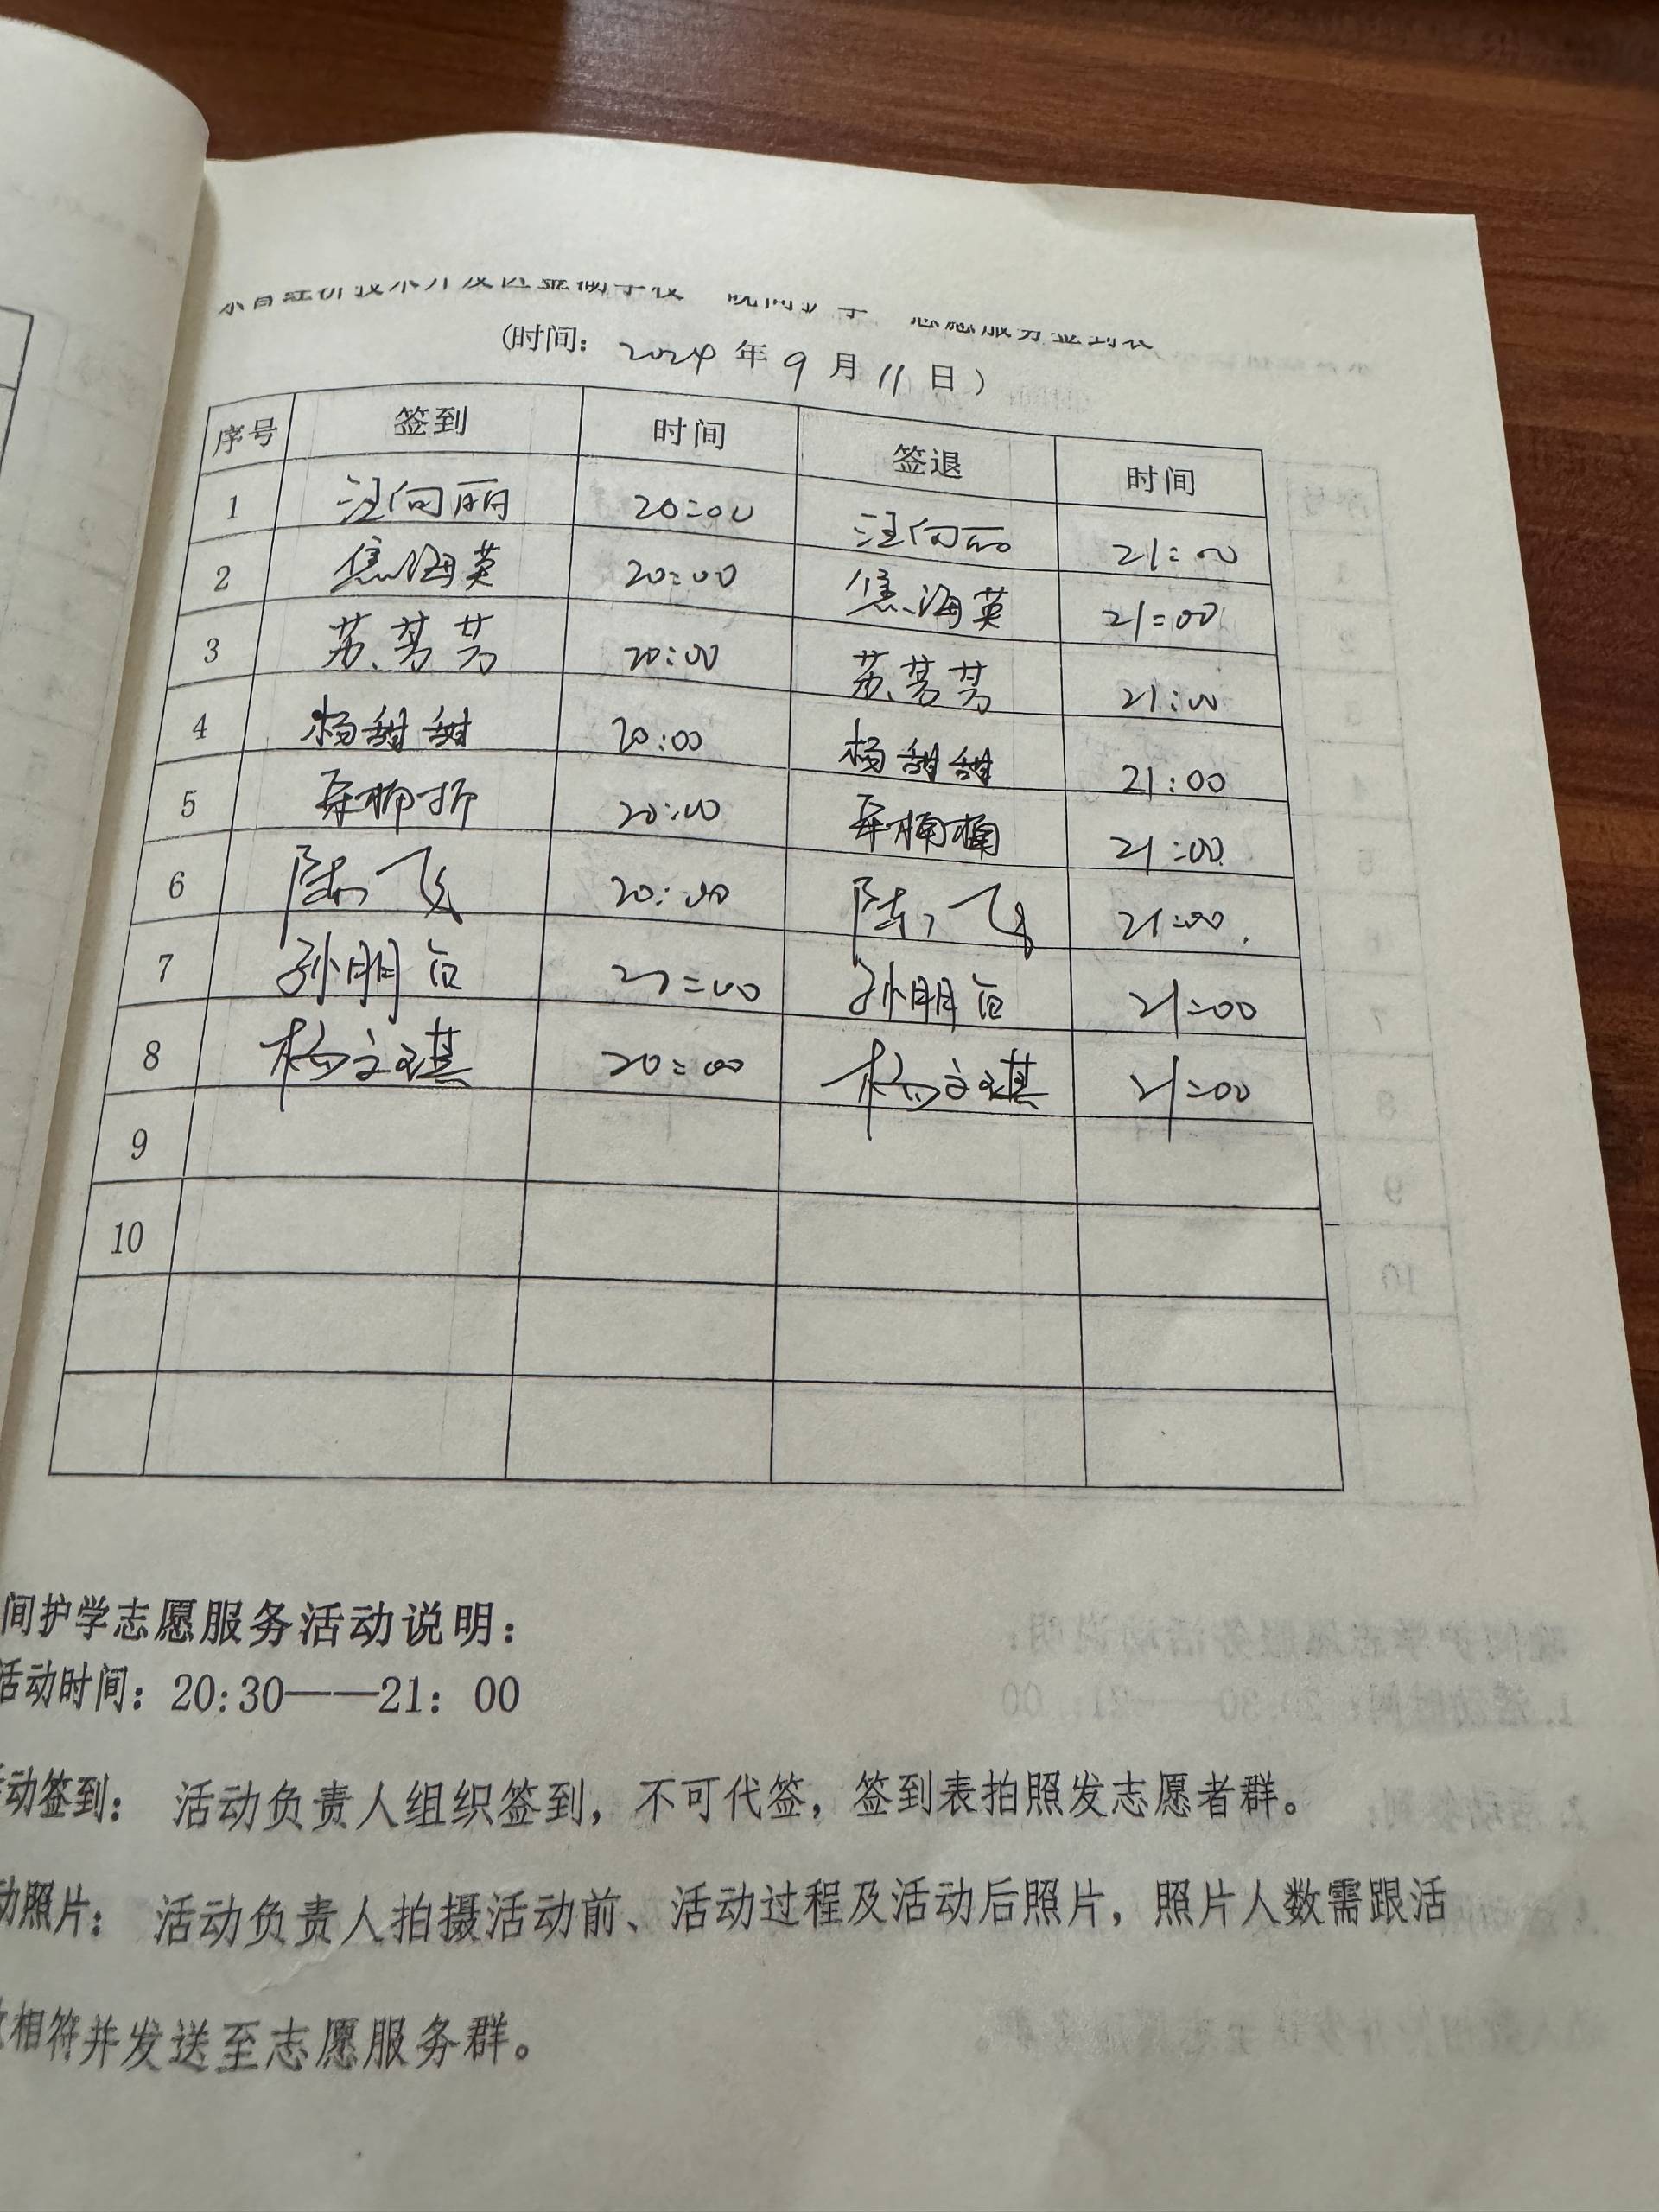 志愿服务签到表
(时间: 2024 年 9 月 11 日)
序号 签到 时间 签退 时间
1 汪向丽 20:00 汪向丽 21:00
2 焦海英 20:00 焦海英 21:00
3 苏芳芳 20:00 苏芳芳 21:00
4 杨甜甜 20:00 杨甜甜 21:00
5 20:00 21:00
6 陆飞 20:00 陆飞 21:00
7 孙明 20:00 孙明 21:00
8 杨文琪 20:00 杨文琪 21:00
9
10
间护学志愿服务活动说明:
活动时间: 20:30——21: 00
动签到: 活动负责人组织签到, 不可代签, 签到表拍照发志愿者群。
动照片: 活动负责人拍摄活动前、活动过程及活动后照片, 照片人数需跟活
相符并发送至志愿服务群。